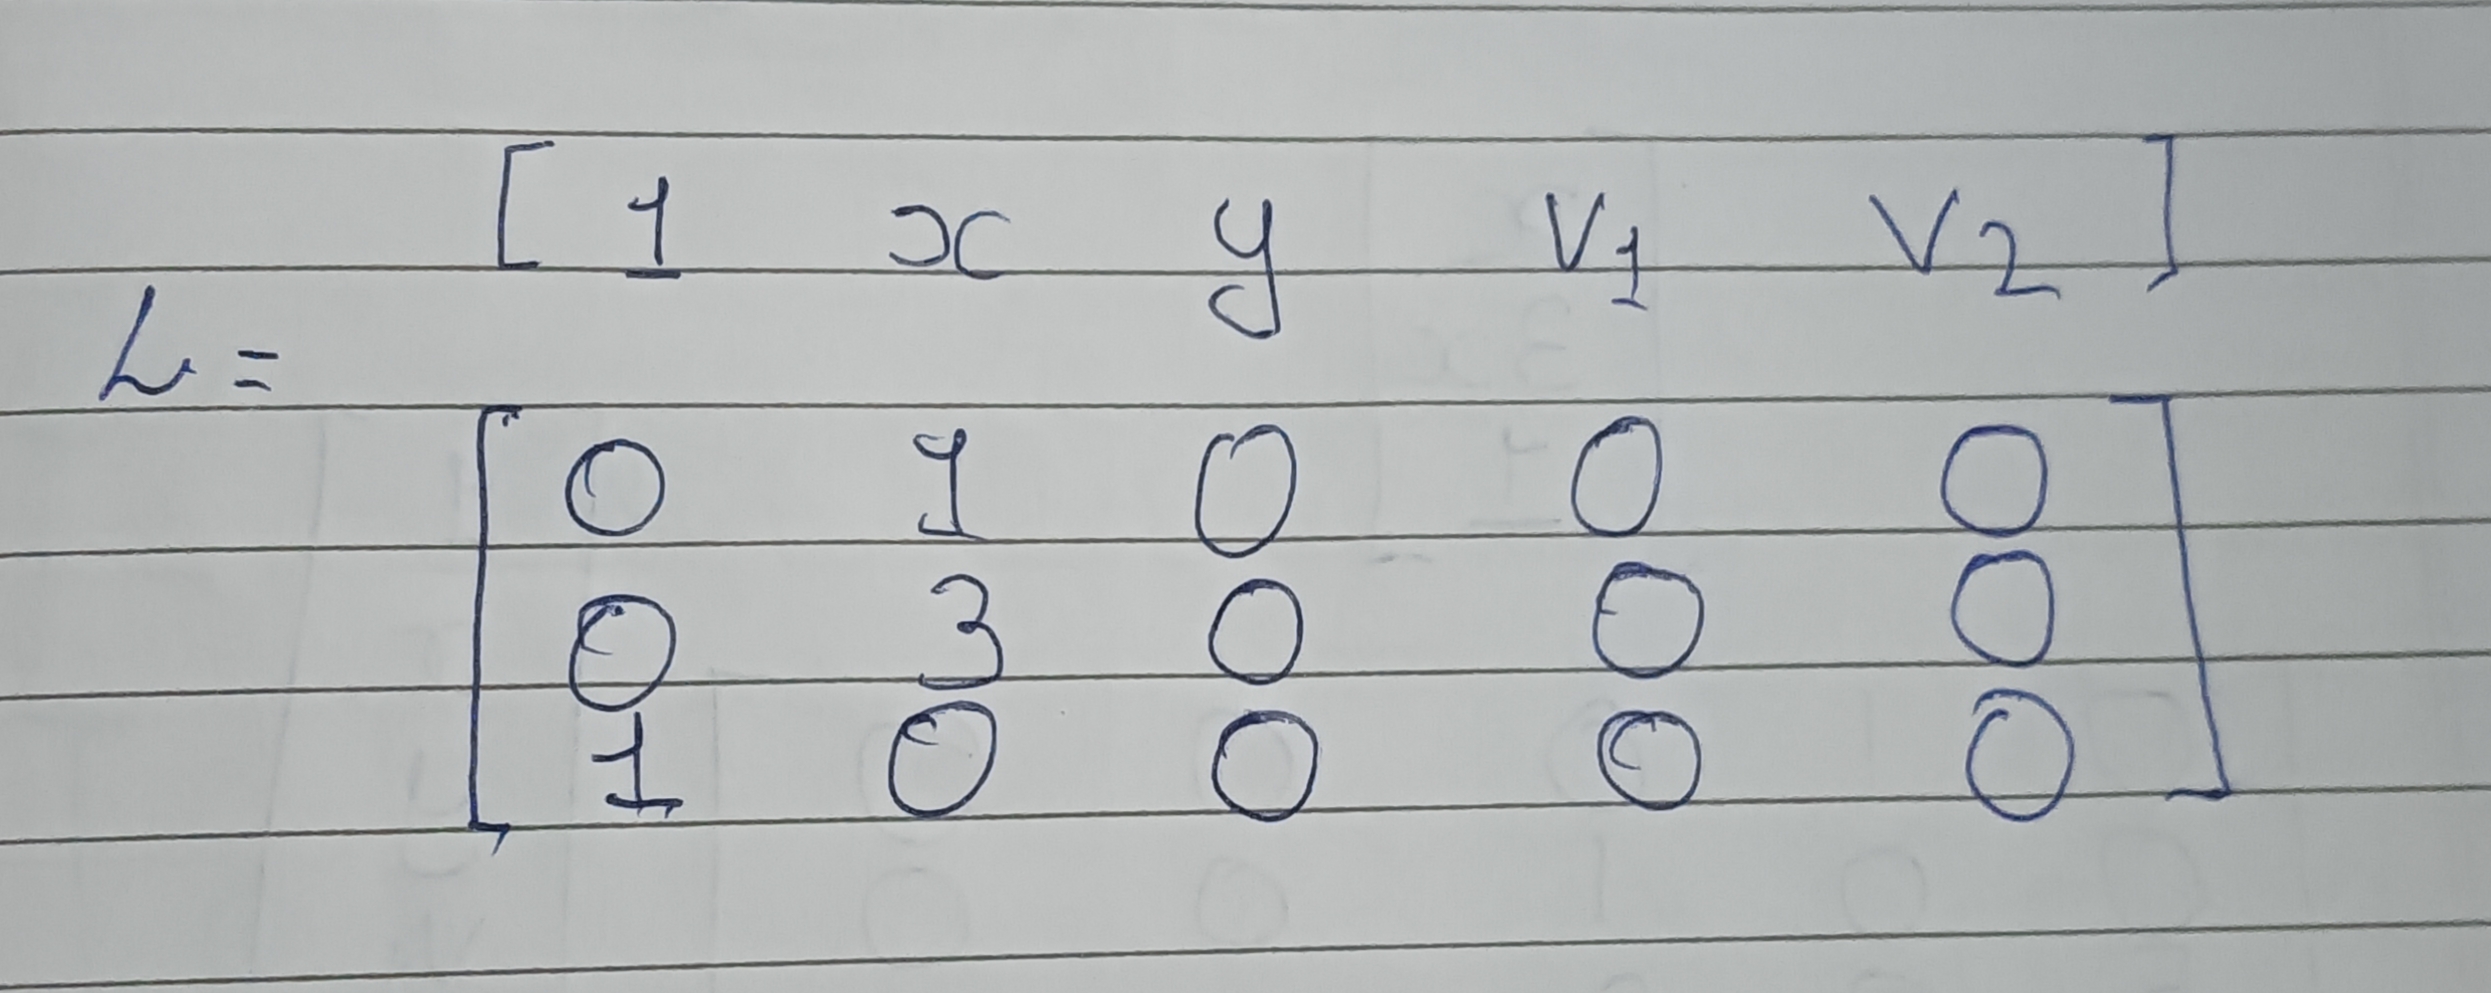 [ 1 x y v1 v2 ]
L =
[ 0 1 0 0 0
0 3 0 0 0
1 0 0 0 0 ]